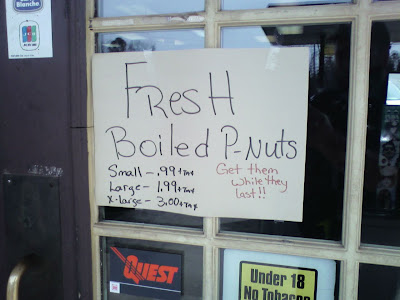 Blanche
JCB
FResH
Boiled P-Nuts
Small - .99 + Tax
Large - 1.99 + Tax
X-Large - 3.00 + Tax
Get them
while they
last!!
QUEST
Under 18
No Tobacco